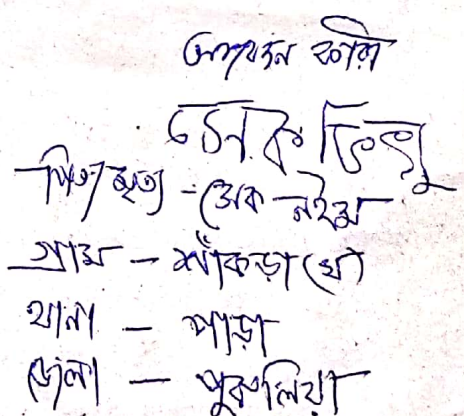 আবেদন কারী
সেক ভিখু
পিতা মৃত - সেক নইম
গ্রাম - কাঁকড়া
থানা - পাড়া
জেলা - পুরুলিয়া